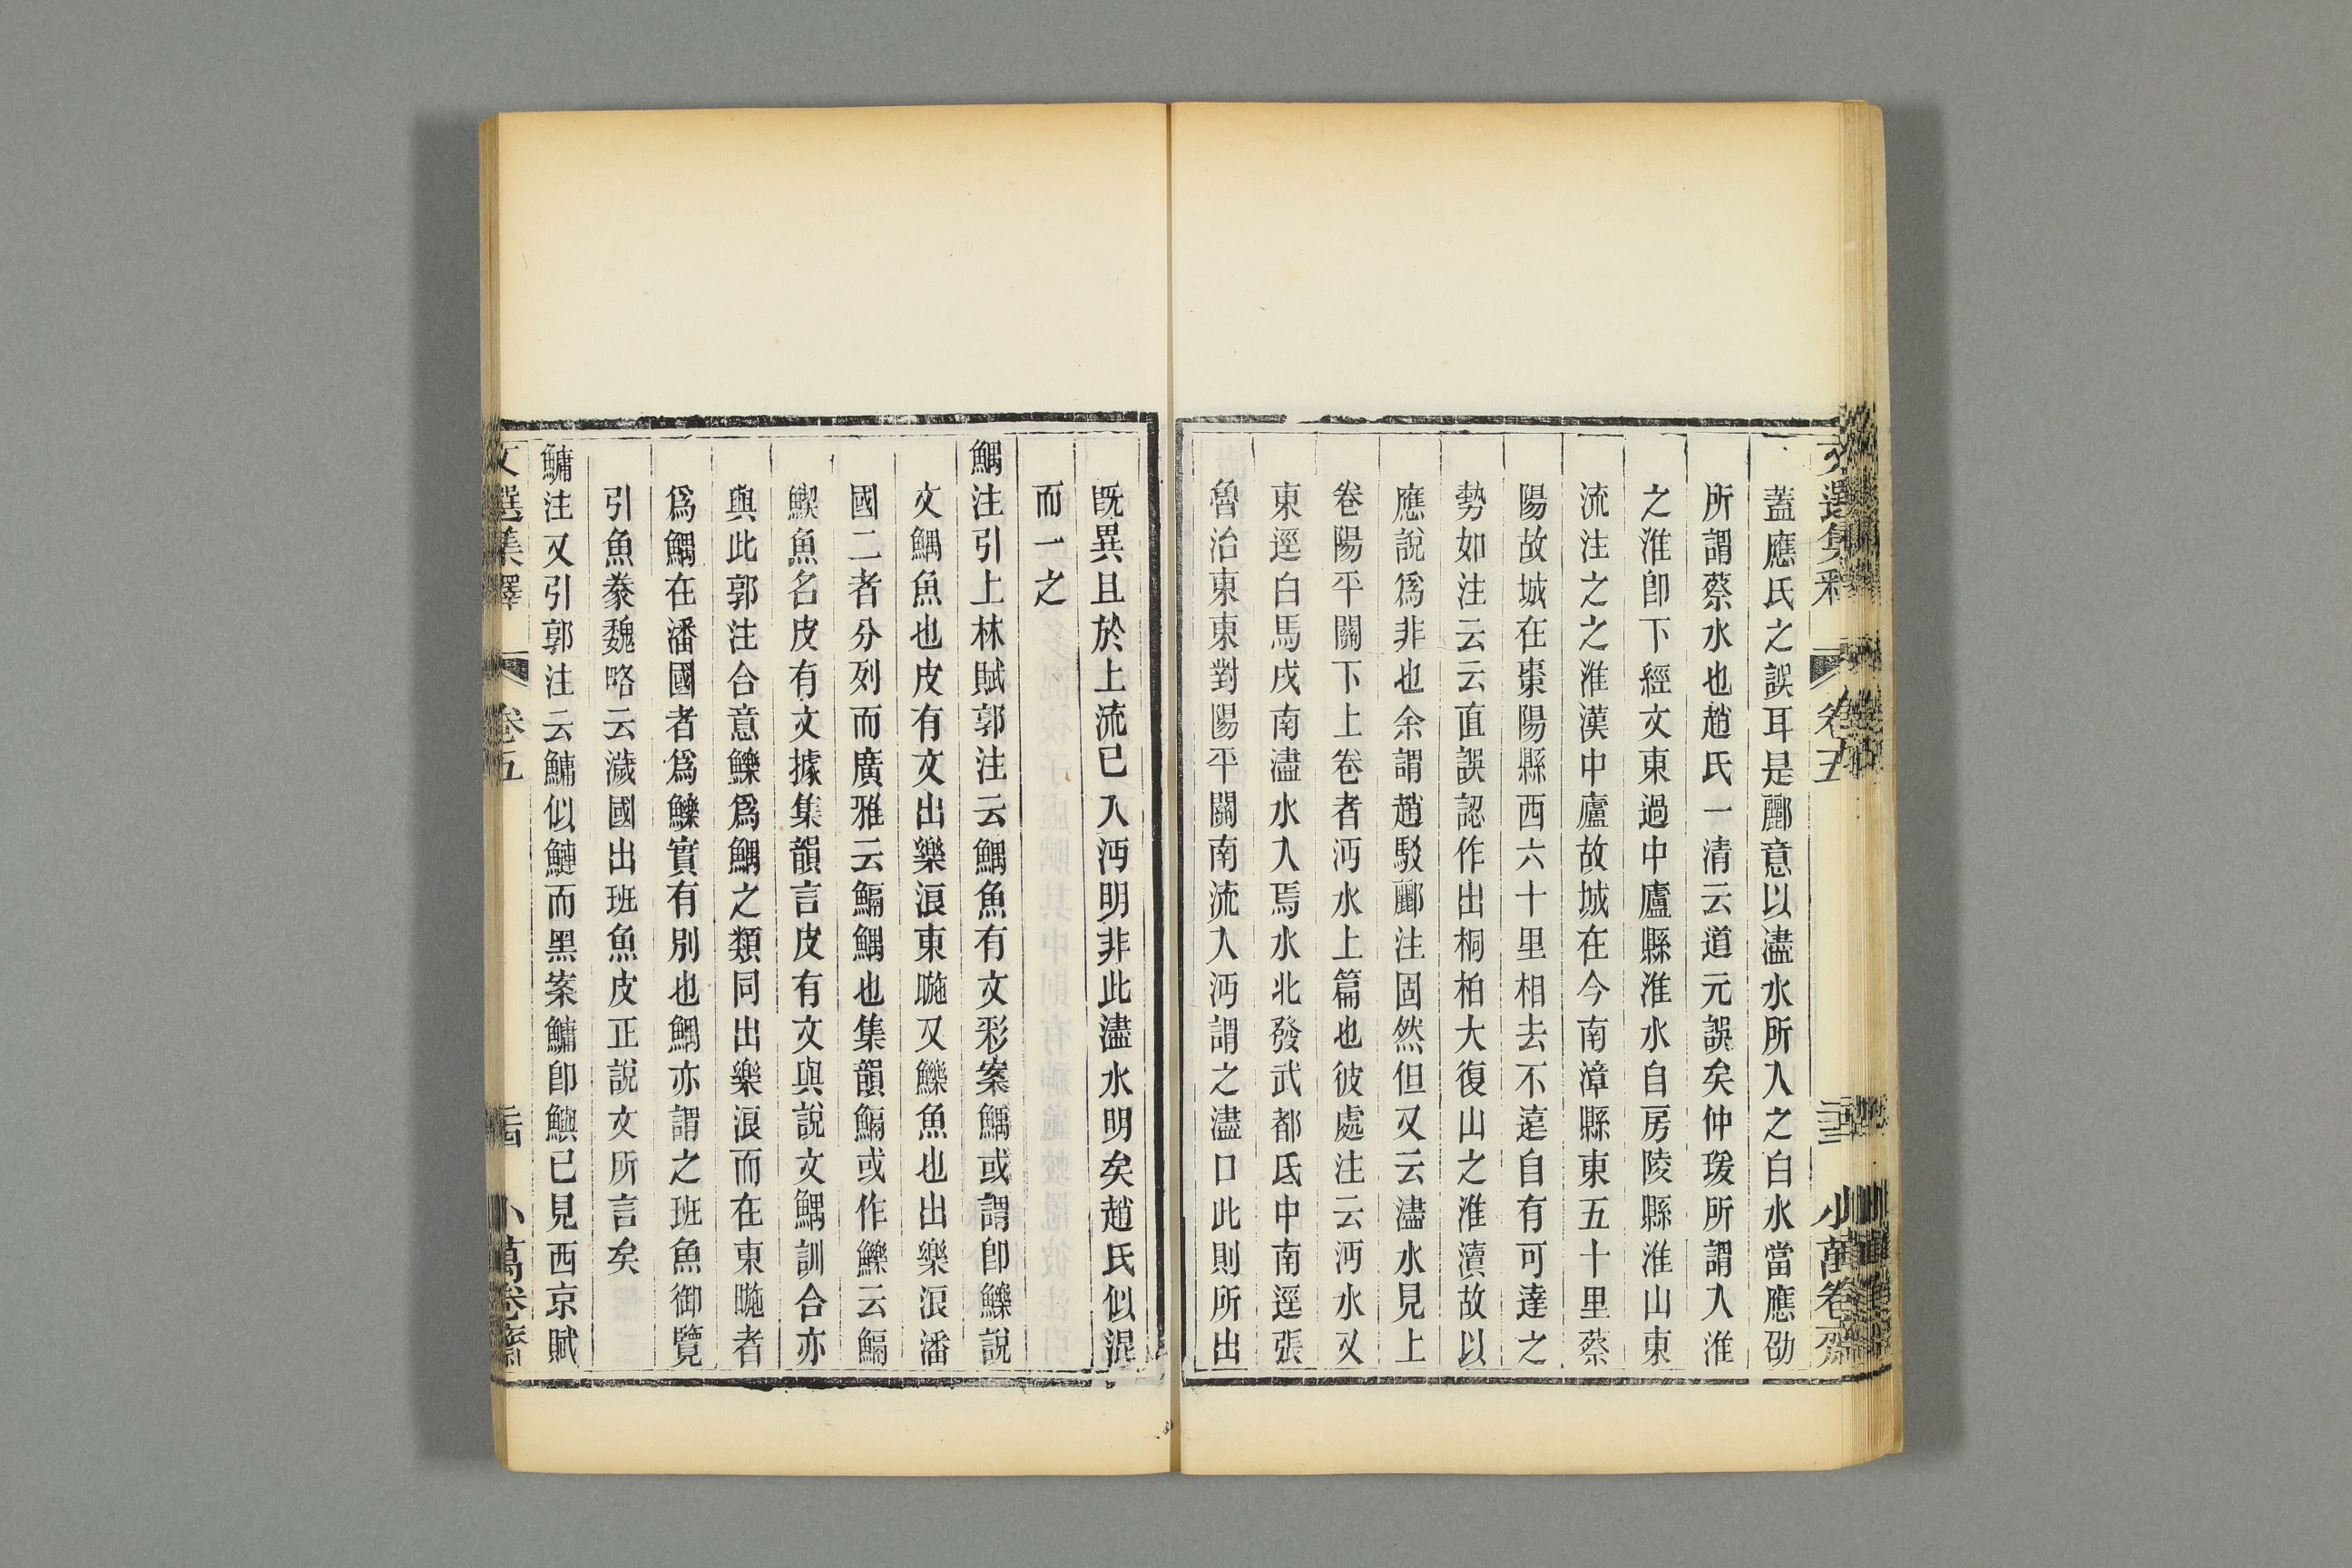 文選集釋 卷五 二十三 小萬卷齋
蓋應氏之誤耳是酈意以濜水所入之白水當應劭
所謂蔡水也趙氏一清云道元誤矣仲瑗所謂入淮
之淮卽下經文東過中廬縣淮水自房陵縣淮山東
流注之之淮漢中廬故城在今南漳縣東五十里蔡
陽故城在棗陽縣西六十里相去不遠自有可達之
勢如注云云直誤認作出桐柏大復山之淮瀆故以
應說爲非也余謂趙駁酈注固然但又云濜水見上
卷陽平關下上卷者沔水上篇也彼處注云沔水又
東逕白馬戍南濜水入焉水北發武都氐中南逕張
魯治東東對陽平關南流入沔謂之濜口此則所出
旣異且於上流已入沔明非此濜水明矣趙氏似混
而一之
鰅注引上林賦郭注云鰅魚有文彩案鰅或謂卽鱳說
文鰅魚也皮有文出樂浪東暆又鱳魚也出樂浪潘
國二者分列而廣雅云鰨鰅也集韻鰨或作鱳云鰨
鰥魚名皮有文據集韻言皮有文與說文鰅訓合亦
與此郭注合意鱳爲鰅之類同出樂浪而在東暆者
爲鰅在潘國者爲鱳實有別也鰅亦謂之班魚御覽
引魚豢魏略云濊國出班魚皮正說文所言矣
鱅注又引郭注云鱅似鰱而黑案鱅卽鱮已見西京賦
文選集釋 卷五 二十四 小萬卷齋